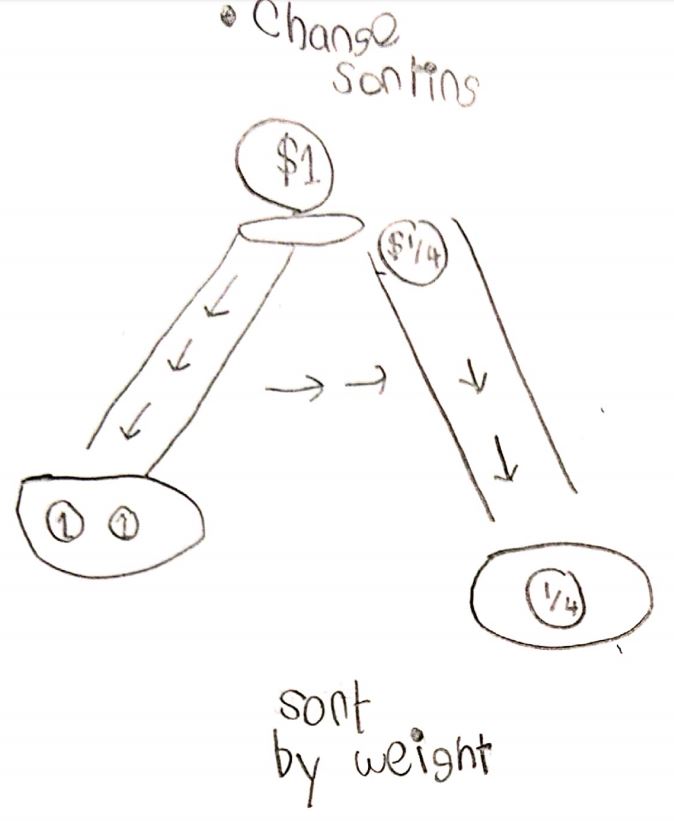 • Change
sorting
$1
$1/4
1 1
1/4
sort
by weight